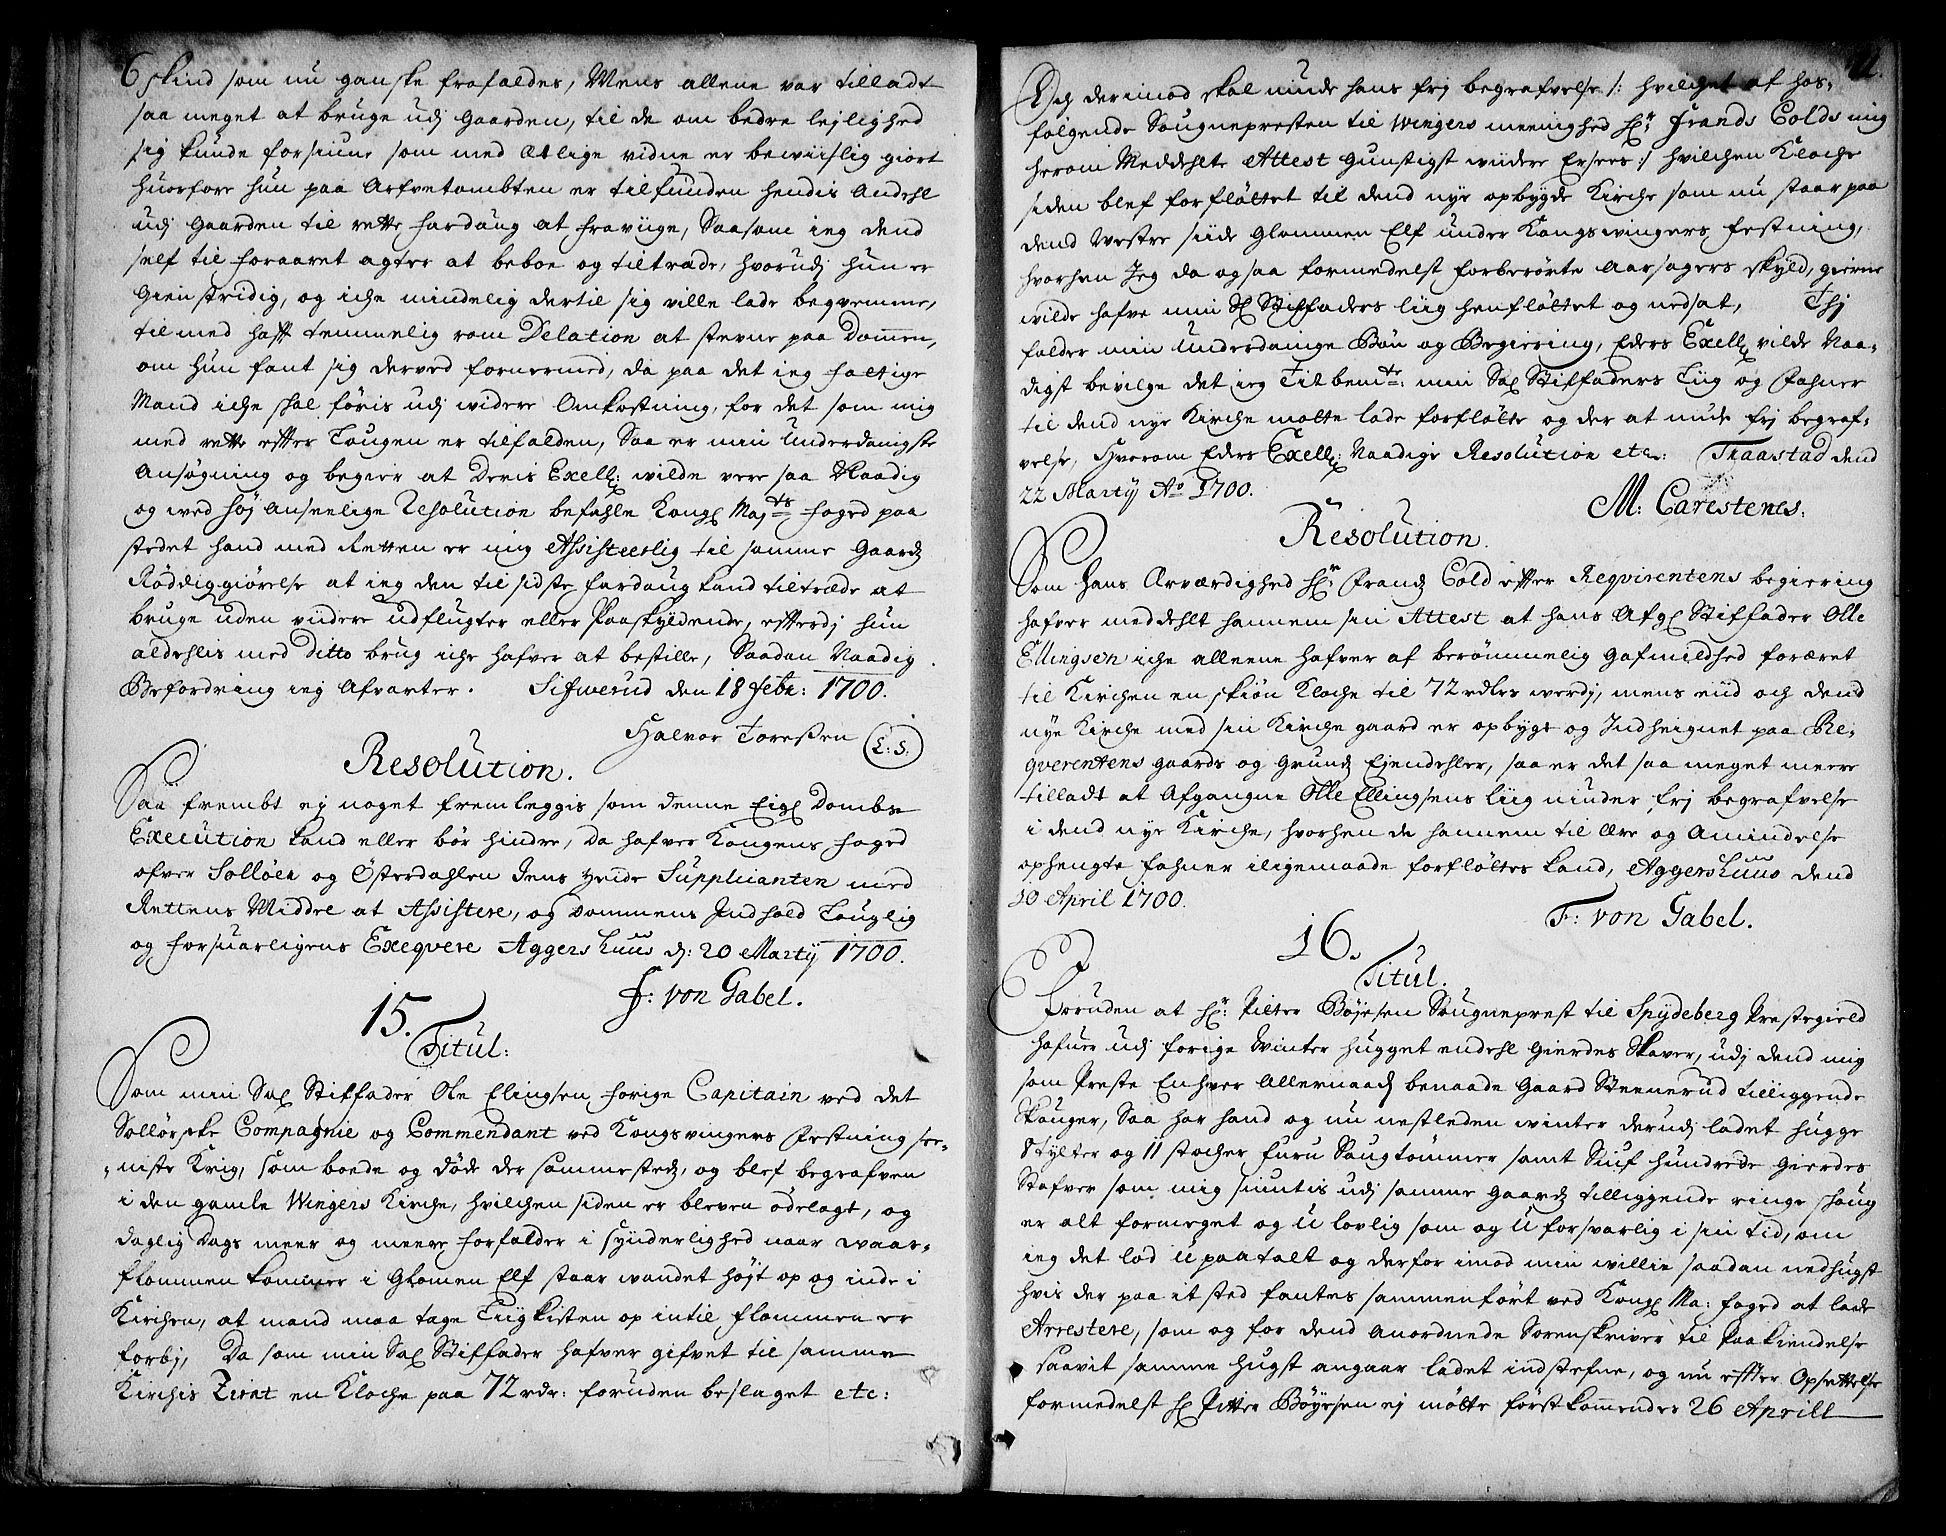 6 skind som nu ganske frafaldes, Mens allene var tilladt
saa meget at bruge udj Gaarden, til de om bedre lejlighed
sig kunde forsiune som med Ætlige vidne er bewiislig giort
huorfore hun paa Arfvetombten er tilfunden hendis Andehl
udj Gaarden til rette fardaug at fraviige, Saasom ieg dend
self til foraaret agter at beboe og tiltræde, hvorudj hun er
Gienstridig, og iche mindelig dertil sig ville lade beqvemme,
tilmed hafft temmelig rom Delation at stevne paa Dommen,
om hun fant sig derved fornermed, da paa det ieg fattige
Mand iche skal føris udj widere Omkostning, for det som mig
med rette effter Lougen er tilfalden, Saa er min Underdanigste
Ansøgning og begier at Deris Excell: wilde vere saa Naadig
og wed høj Ansenlige Resolution befahle Kongl Maj:ts foged paa
stedet hand med Retten er mig Assisteerlig til samme Gaards
Røddiggiørelse at ieg den til sidste fardaug kand tiltræde at
bruge uden viidere udflugter eller Paaskydende, efterdj hun
aldehlis med ditto brug iche hafver at bestille, Saadan Naadig
Befordring ieg Afvarter. Sifwerud den 18 Febr: 1700.
Halvor Toreßen (L: S.)
Resolution.
Saa frembt ej noget fremleggis som denne Eigl Dombs
Execution kand eller bør hindre, Da hafver Kongens foged
ofver Solløer og Østerdahlen Jens Heide Supplicanten med
Rettens Middel at Assistere, og Dommens Indhold Louglig
og forsuarligens Exeqvere Aggershuus d: 20 Martij 1700.
F: von Gabel.
15.
Titul:
Som min Sal Stiffader Ole Elingsen, forige Capitain ved det
Sollørske Compagnie og Commendant ved Kongsvingers Festning see-
niste Krig, som boede og døde der sammesteds, og blef begrafven
i den gamle Wingers Kirche, hvilchen siden er bleven ødelagt, og
daglig Dags meer og meere forfalder i synderlighed naar waar-
flommen kommer i Glomen Elf staar wandet højt op og inde i
Kirchen, at mand maa tage Liigkisten op intil flommen er
forbj, Da som min Sal Stiffader hafver gifvet til samme
Kirchis Zirat en Kloche paa 72 rdr: foruden beslaget etc:
12.
Och derimod skal niude hans frj begrafvelse /: hvilchet af hos-
følgende Sougneprestens til Wingers meenighed Hr: Frands Colds mig
herom Meddehlte Attest Gunstigst wiidere Ersees :/ hvilchen Kloche
siden blef forfløttet til dend nye opbygde Kirche som nu staar paa
dend Westre siide Glommen Elf under Kongswingers festning,
hvorhen Jeg da ogsaa formedelst forberørte Aarsagers skyld, gierne
wilde hafve min Sl Stiffaders liig henfløttet og nedsat, Thj
falder min Underdanige Bøn og Begiering, Eders Excell: vilde Naa-
digst bevilge det ieg Titbem:te min Sal Stiffaders Liig og Fahner
til dend nye Kirche motte lade forfløtte og der at niude frj begraf-
velse, Hvorom Eders Excell: Naadige Resolution etc: Traastad dend
22 Martij Ao 1700.
M: Carestens.
Resolution.
Som Hans Ærværdighed Hr: Frands Cold effter Reqvirentens begiering
hafver meddehlt hannem sin Attest at hans Afgl Stiffader Olle
Ellingsen iche alleene hafver af berømmelig Gafmildhed foræret
til Kirchen en skiøn Kloche til 72 rdlrs werdj, mens end och dend
nye Kirche med sin Kirche gaard er opbygt og Indheignet paa Re-
qverentens gaards og Grunds Ejendehler, saa er det saa meget meere
tilladt at Afgangne Olle Ellingsens liig niuder frj begrafvelse
i dend nye Kirche, hvorhen de hannem til Ære og Amindelse
ophengte fahner iligemaade forfløttes kand, Aggershuus dend
10 April 1700.
F: von Gabel.
16.
Titul.
Foruden at Hr: Pitter Bøyesen Sougneprest til Spydeberg Prestegield
hafuer udj forige Winter hugget endehl Gierdes Staver, udj dend mig
som Preste Enhver Allernaads benaade Gaard Steenerud tilliggende
Skouger, Saa har hand og nu nestleden winter derudj ladet hugge
8 tylter og 11 stocher furu Saugtømmer samt Siuf hundrede Gierdes
Stafver som mig siuntis udj samme Gaards tilliggende ringe Skoug
er alt formeget og ulovlig som og uforsvarlig i sin tid, om
ieg det lod upaatalt og derfor imod min willie saadan nedhugst
hvis der paa it sted fantes sammenført ved Kongl Ma: foged at lade
Arrestere, som og for dend anordnede Sorenskriver til Paakiendelse
saavit samme hugst angaar ladet indstefne, og nu effter Opsettelse
formedelst Hr Pitter Bøyesen ej møtte førstkommendes 26 Aprill